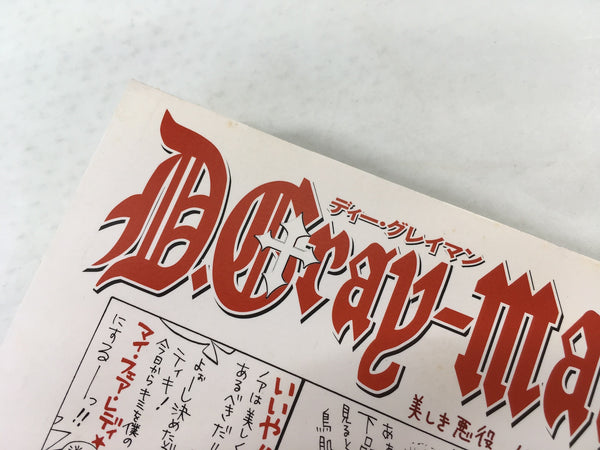 D.Gray-ma
ディー・グレイマン
美しき悪役
いいや
ノアは美しく
あるべきだ!!
よぉーし決めた
ティキ!
今日からキミを僕の
マイ・フェア・レディ★
にするーっ!!
見ると
鳥肌